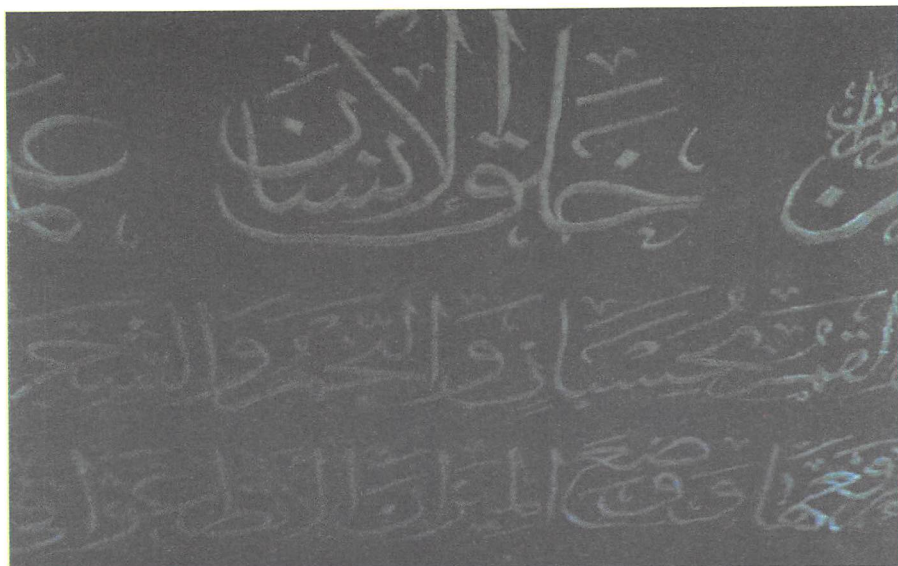 خَلَقَ الْإِنسَانَ
وَالْقَمَرُ بِحُسْبَانٍ وَالنَّجْمُ وَالشَّجَرُ
رَفَعَهَا وَوَضَعَ الْمِيزَانَ أَلَّا تَطْغَوْا